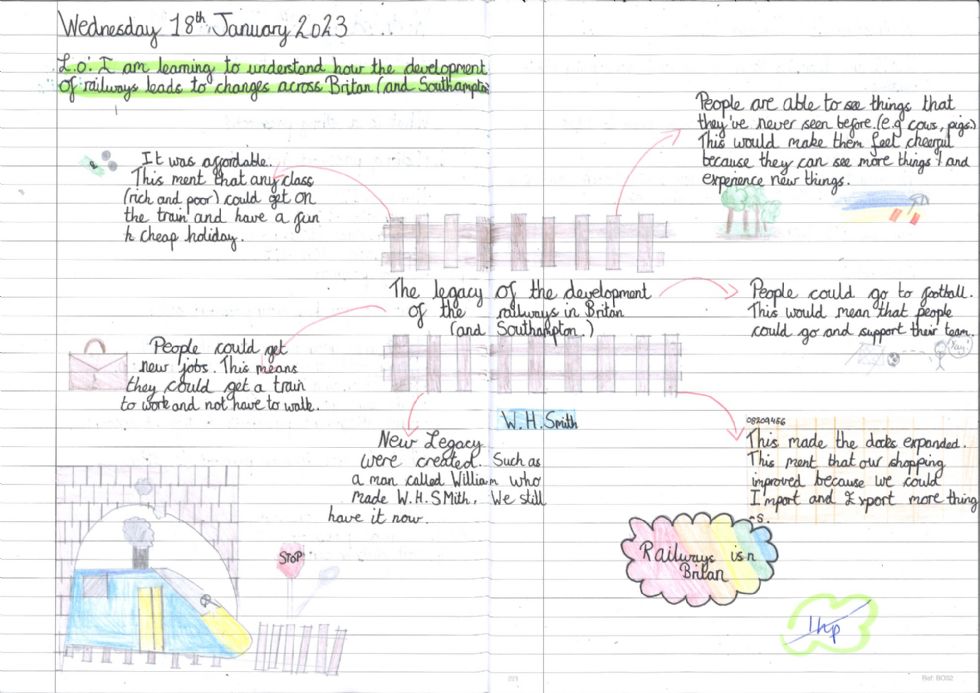 Wednesday 18th January 2023
L.o: I am learning to understand how the development
of railways leads to changes across Britan (and Southampton
It was affordable.
This ment that any class
(rich and poor) could get on
the train and have a fun
& cheap holiday.
People are able to see things that
they've never seen before. (e.g cows, pigs)
This would make them feel cheerful
because they can see more things! and
experience new things.
The legacy of the development
of the railways in Britan
(and Southampton.)
People could go to football.
This would mean that people
could go and support their team.
Yay!
People could get
new jobs. This means
they could get a train
to work and not have to walk.
W.H.Smith
New Legacy
were created. Such as
a man called William who
made W.H.SMith. We still
have it now.
08209456
This made the docks expanded.
This ment that our shopping
improved because we could
Import and Export more thing
-s.
STOP
Railways isn
Britan
1hp
221
Ref: BOS2